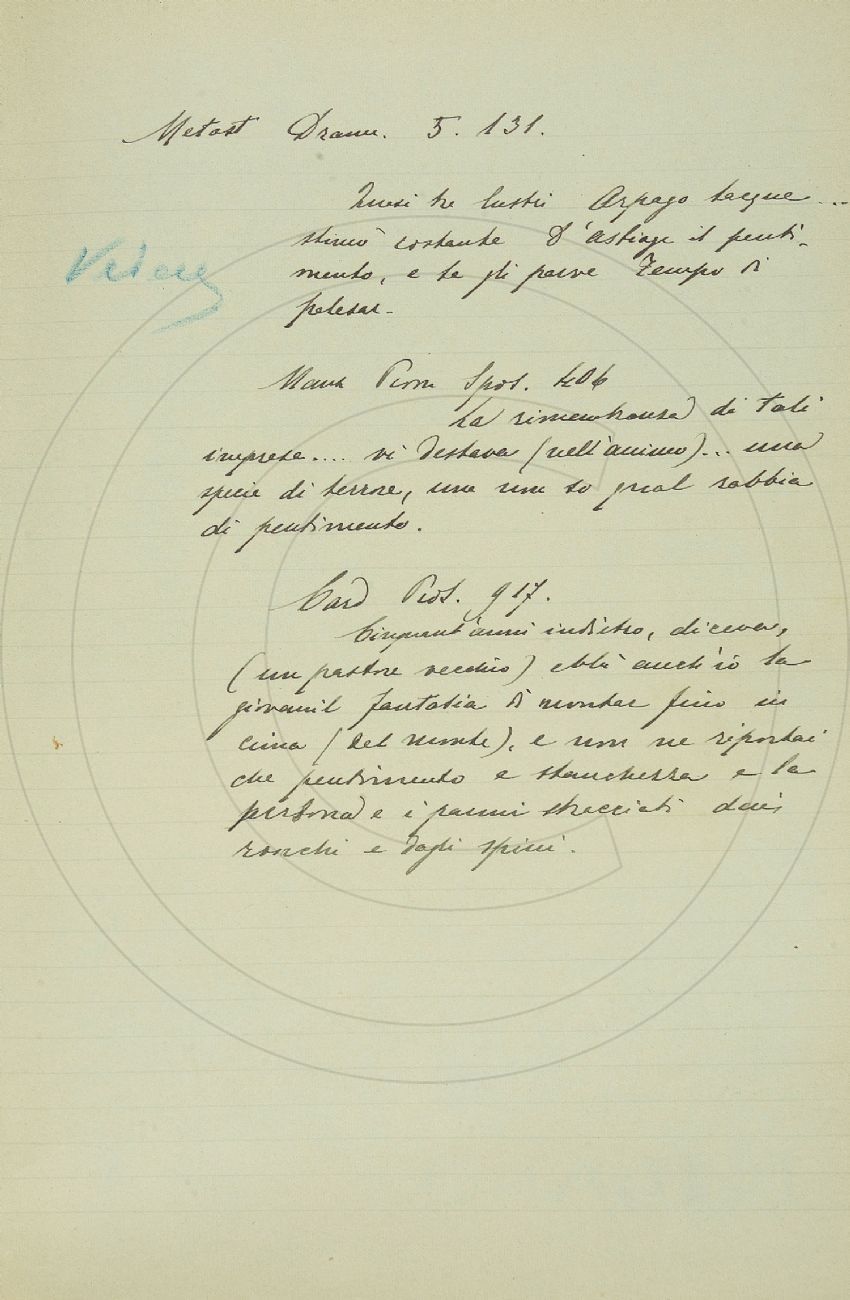 Metast Dramm. 5. 131.
Quasi tre lustri Arpago tacque ...
stimò costante d'Astiage il penti-
mento, e se gli parve Tempo di
palesar -
Vedere
Manz Prom Spos. 406
La rimembranza di tali
imprese .... vi destava (nell'animo) ... una
specie di terrore, una non so qual rabbia
di pentimento.
Card Pros. 917.
Cinquant'anni indietro, diceva,
(un pastore vecchio) ebbi anch'io la
giovanil fantasia di montar fino in
cima (del monte), e non ne riportai
che pentimento e stanchezza e la
persona e i panni stracciati dai
ronchi e dagli spini.